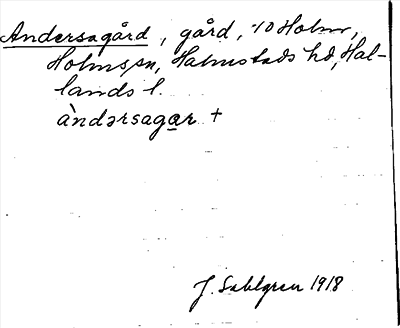 Andersagård, gård, 10 Holm,
Holms sn, Halmstads hd, Hal-
lands l.
àndərsagar +
J. Sahlgren 1918